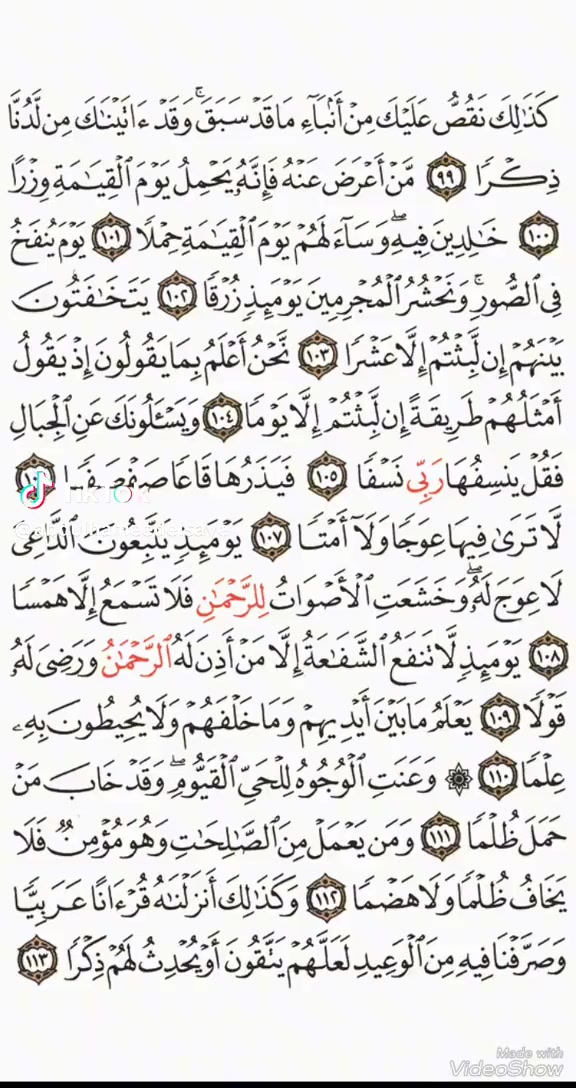 كَذَٰلِكَ نَقُصُّ عَلَيْكَ مِنْ أَنۢبَآءِ مَا قَدْ سَبَقَ ۚ وَقَدْ ءَاتَيْنَٰكَ مِن لَّدُنَّا
ذِكْرًا ٩٩ مَّنْ أَعْرَضَ عَنْهُ فَإِنَّهُۥ يَحْمِلُ يَوْمَ ٱلْقِيَٰمَةِ وِزْرًا
١٠٠ خَٰلِدِينَ فِيهِ ۖ وَسَآءَ لَهُمْ يَوْمَ ٱلْقِيَٰمَةِ حِمْلًا ١٠١ يَوْمَ يُنفَخُ
فِى ٱلصُّورِ ۚ وَنَحْشُرُ ٱلْمُجْرِمِينَ يَوْمَئِذٍ زُرْقًا ١٠٢ يَتَخَٰفَتُونَ
بَيْنَهُمْ إِن لَّبِثْتُمْ إِلَّا عَشْرًا ١٠٣ نَّحْنُ أَعْلَمُ بِمَا يَقُولُونَ إِذْ يَقُولُ
أَمْثَلُهُمْ طَرِيقَةً إِن لَّبِثْتُمْ إِلَّا يَوْمًا ١٠٤ وَيَسْـَٔلُونَكَ عَنِ ٱلْجِبَالِ
فَقُلْ يَنسِفُهَا رَبِّى نَسْفًا ١٠٥ فَيَذَرُهَا قَاعًا صَفْصَفًا ١٠٦
TikTok
لَّا تَرَىٰ فِيهَا عِوَجًا وَلَآ أَمْتًا ١٠٧ يَوْمَئِذٍ يَتَّبِعُونَ ٱلدَّاعِىَ
لَا عِوَجَ لَهُۥ ۖ وَخَشَعَتِ ٱلْأَصْوَاتُ لِلرَّحْمَٰنِ فَلَا تَسْمَعُ إِلَّا هَمْسًا
١٠٨ يَوْمَئِذٍ لَّا تَنفَعُ ٱلشَّفَٰعَةُ إِلَّا مَنْ أَذِنَ لَهُ ٱلرَّحْمَٰنُ وَرَضِىَ لَهُۥ
قَوْلًا ١٠٩ يَعْلَمُ مَا بَيْنَ أَيْدِيهِمْ وَمَا خَلْفَهُمْ وَلَا يُحِيطُونَ بِهِۦ
عِلْمًا ١١٠ ۞ وَعَنَتِ ٱلْوُجُوهُ لِلْحَىِّ ٱلْقَيُّومِ ۖ وَقَدْ خَابَ مَنْ
حَمَلَ ظُلْمًا ١١١ وَمَن يَعْمَلْ مِنَ ٱلصَّٰلِحَٰتِ وَهُوَ مُؤْمِنٌ فَلَا
يَخَافُ ظُلْمًا وَلَا هَضْمًا ١١٢ وَكَذَٰلِكَ أَنزَلْنَٰهُ قُرْءَانًا عَرَبِيًّا
وَصَرَّفْنَا فِيهِ مِنَ ٱلْوَعِيدِ لَعَلَّهُمْ يَتَّقُونَ أَوْ يُحْدِثُ لَهُمْ ذِكْرًا ١١٣
Made with
VideoShow